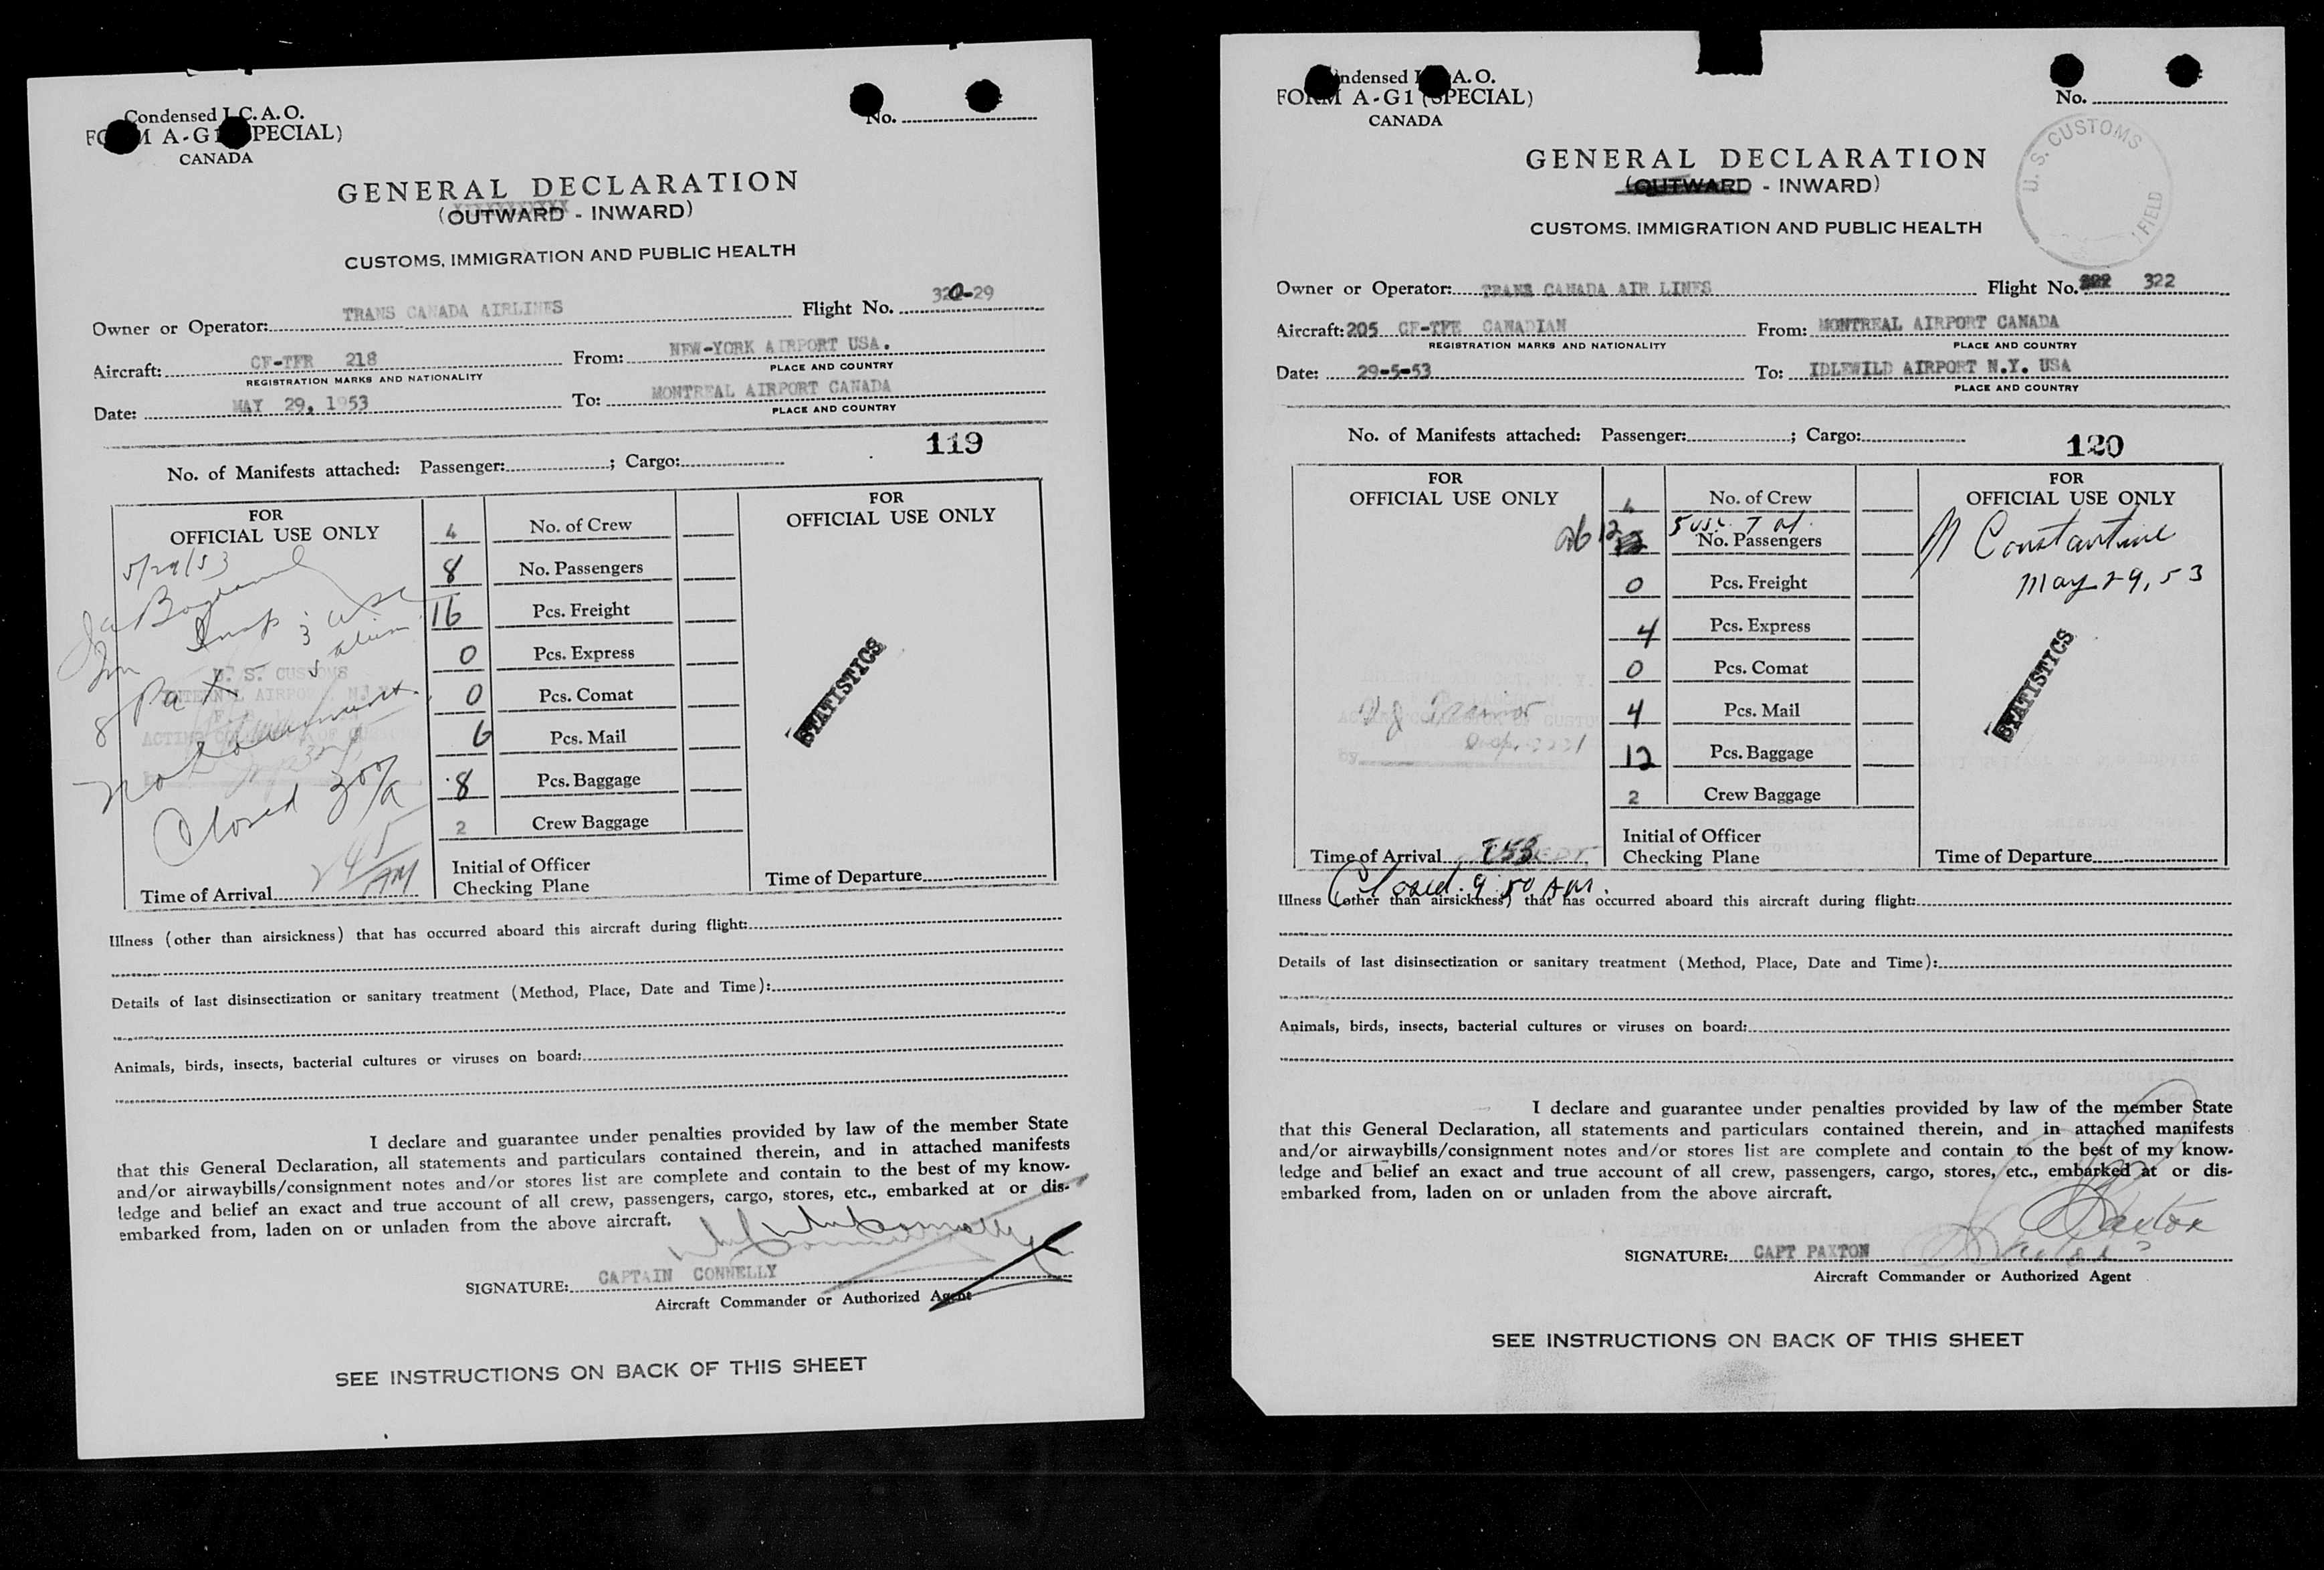 Condensed I.C.A.O.
FORM A-G1 (SPECIAL)
CANADA
No.
GENERAL DECLARATION
(OUTWARD - INWARD)
CUSTOMS, IMMIGRATION AND PUBLIC HEALTH
Owner or Operator: TRANS CANADA AIRLINES Flight No. 320-29
Aircraft: CF-TFR 218 From: NEW-YORK AIRPORT USA.
REGISTRATION MARKS AND NATIONALITY PLACE AND COUNTRY
Date: MAY 29, 1953 To: MONTREAL AIRPORT CANADA
PLACE AND COUNTRY
119
No. of Manifests attached: Passenger: ; Cargo:
FOR
OFFICIAL USE ONLY
5/29/53
8 Pax
U. S. CUSTOMS
Closed
4 No. of Crew
8 No. Passengers
16 Pcs. Freight
0 Pcs. Express
0 Pcs. Comat
6 Pcs. Mail
8 Pcs. Baggage
2 Crew Baggage
Initial of Officer
Checking Plane
FOR
OFFICIAL USE ONLY
STATISTICS
Time of Arrival 245 AM
Time of Departure
Illness (other than airsickness) that has occurred aboard this aircraft during flight:
Details of last disinsectization or sanitary treatment (Method, Place, Date and Time):
Animals, birds, insects, bacterial cultures or viruses on board:
I declare and guarantee under penalties provided by law of the member State
that this General Declaration, all statements and particulars contained therein, and in attached manifests
and/or airwaybills/consignment notes and/or stores list are complete and contain to the best of my know-
ledge and belief an exact and true account of all crew, passengers, cargo, stores, etc., embarked at or dis-
embarked from, laden on or unladen from the above aircraft.
SIGNATURE: CAPTAIN CONNELLY
Aircraft Commander or Authorized Agent
SEE INSTRUCTIONS ON BACK OF THIS SHEET
Condensed I.C.A.O.
FORM A-G1 (SPECIAL)
CANADA
No.
U. S. CUSTOMS
FIELD
GENERAL DECLARATION
(OUTWARD - INWARD)
CUSTOMS, IMMIGRATION AND PUBLIC HEALTH
Owner or Operator: TRANS CANADA AIR LINES Flight No. 322
Aircraft: 205 CF-TFE CANADIAN From: MONTREAL AIRPORT CANADA
REGISTRATION MARKS AND NATIONALITY PLACE AND COUNTRY
Date: 29-5-53 To: IDLEWILD AIRPORT N.Y. USA
PLACE AND COUNTRY
120
No. of Manifests attached: Passenger: ; Cargo:
FOR
OFFICIAL USE ONLY
4 No. of Crew
12 No. Passengers
0 Pcs. Freight
4 Pcs. Express
0 Pcs. Comat
4 Pcs. Mail
12 Pcs. Baggage
2 Crew Baggage
Initial of Officer
Checking Plane
FOR
OFFICIAL USE ONLY
Constantine
May 29, 53
STATISTICS
Time of Arrival
Time of Departure
Closed 9:50 AM.
Illness (other than airsickness) that has occurred aboard this aircraft during flight:
Details of last disinsectization or sanitary treatment (Method, Place, Date and Time):
Animals, birds, insects, bacterial cultures or viruses on board:
I declare and guarantee under penalties provided by law of the member State
that this General Declaration, all statements and particulars contained therein, and in attached manifests
and/or airwaybills/consignment notes and/or stores list are complete and contain to the best of my know-
ledge and belief an exact and true account of all crew, passengers, cargo, stores, etc., embarked at or dis-
embarked from, laden on or unladen from the above aircraft.
Paxton
SIGNATURE: CAPT PAXTON
Aircraft Commander or Authorized Agent
SEE INSTRUCTIONS ON BACK OF THIS SHEET